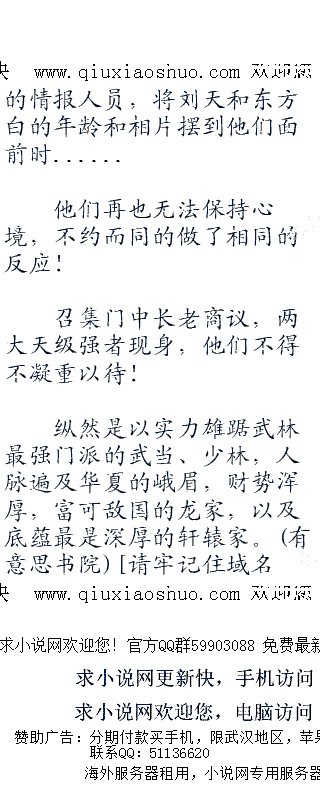 快 www.qiuxiaoshuo.com 欢迎您
的情报人员，将刘天和东方
白的年龄和相片摆到他们面
前时......
他们再也无法保持心
境，不约而同的做了相同的
反应！
召集门中长老商议，两
大天级强者现身，他们不得
不凝重以待！
纵然是以实力雄踞武林
最强门派的武当、少林，人
脉遍及华夏的峨眉，财势浑
厚，富可敌国的龙家，以及
底蕴最是深厚的轩辕家。(有
意思书院)[请牢记住域名
快 www.qiuxiaoshuo.com 欢迎您
求小说网欢迎您！官方QQ群59903088 免费最新
求小说网更新快，手机访问
求小说网欢迎您，电脑访问
赞助广告：分期付款买手机，限武汉地区，苹果
联系QQ：51136620
海外服务器租用，小说网专用服务器